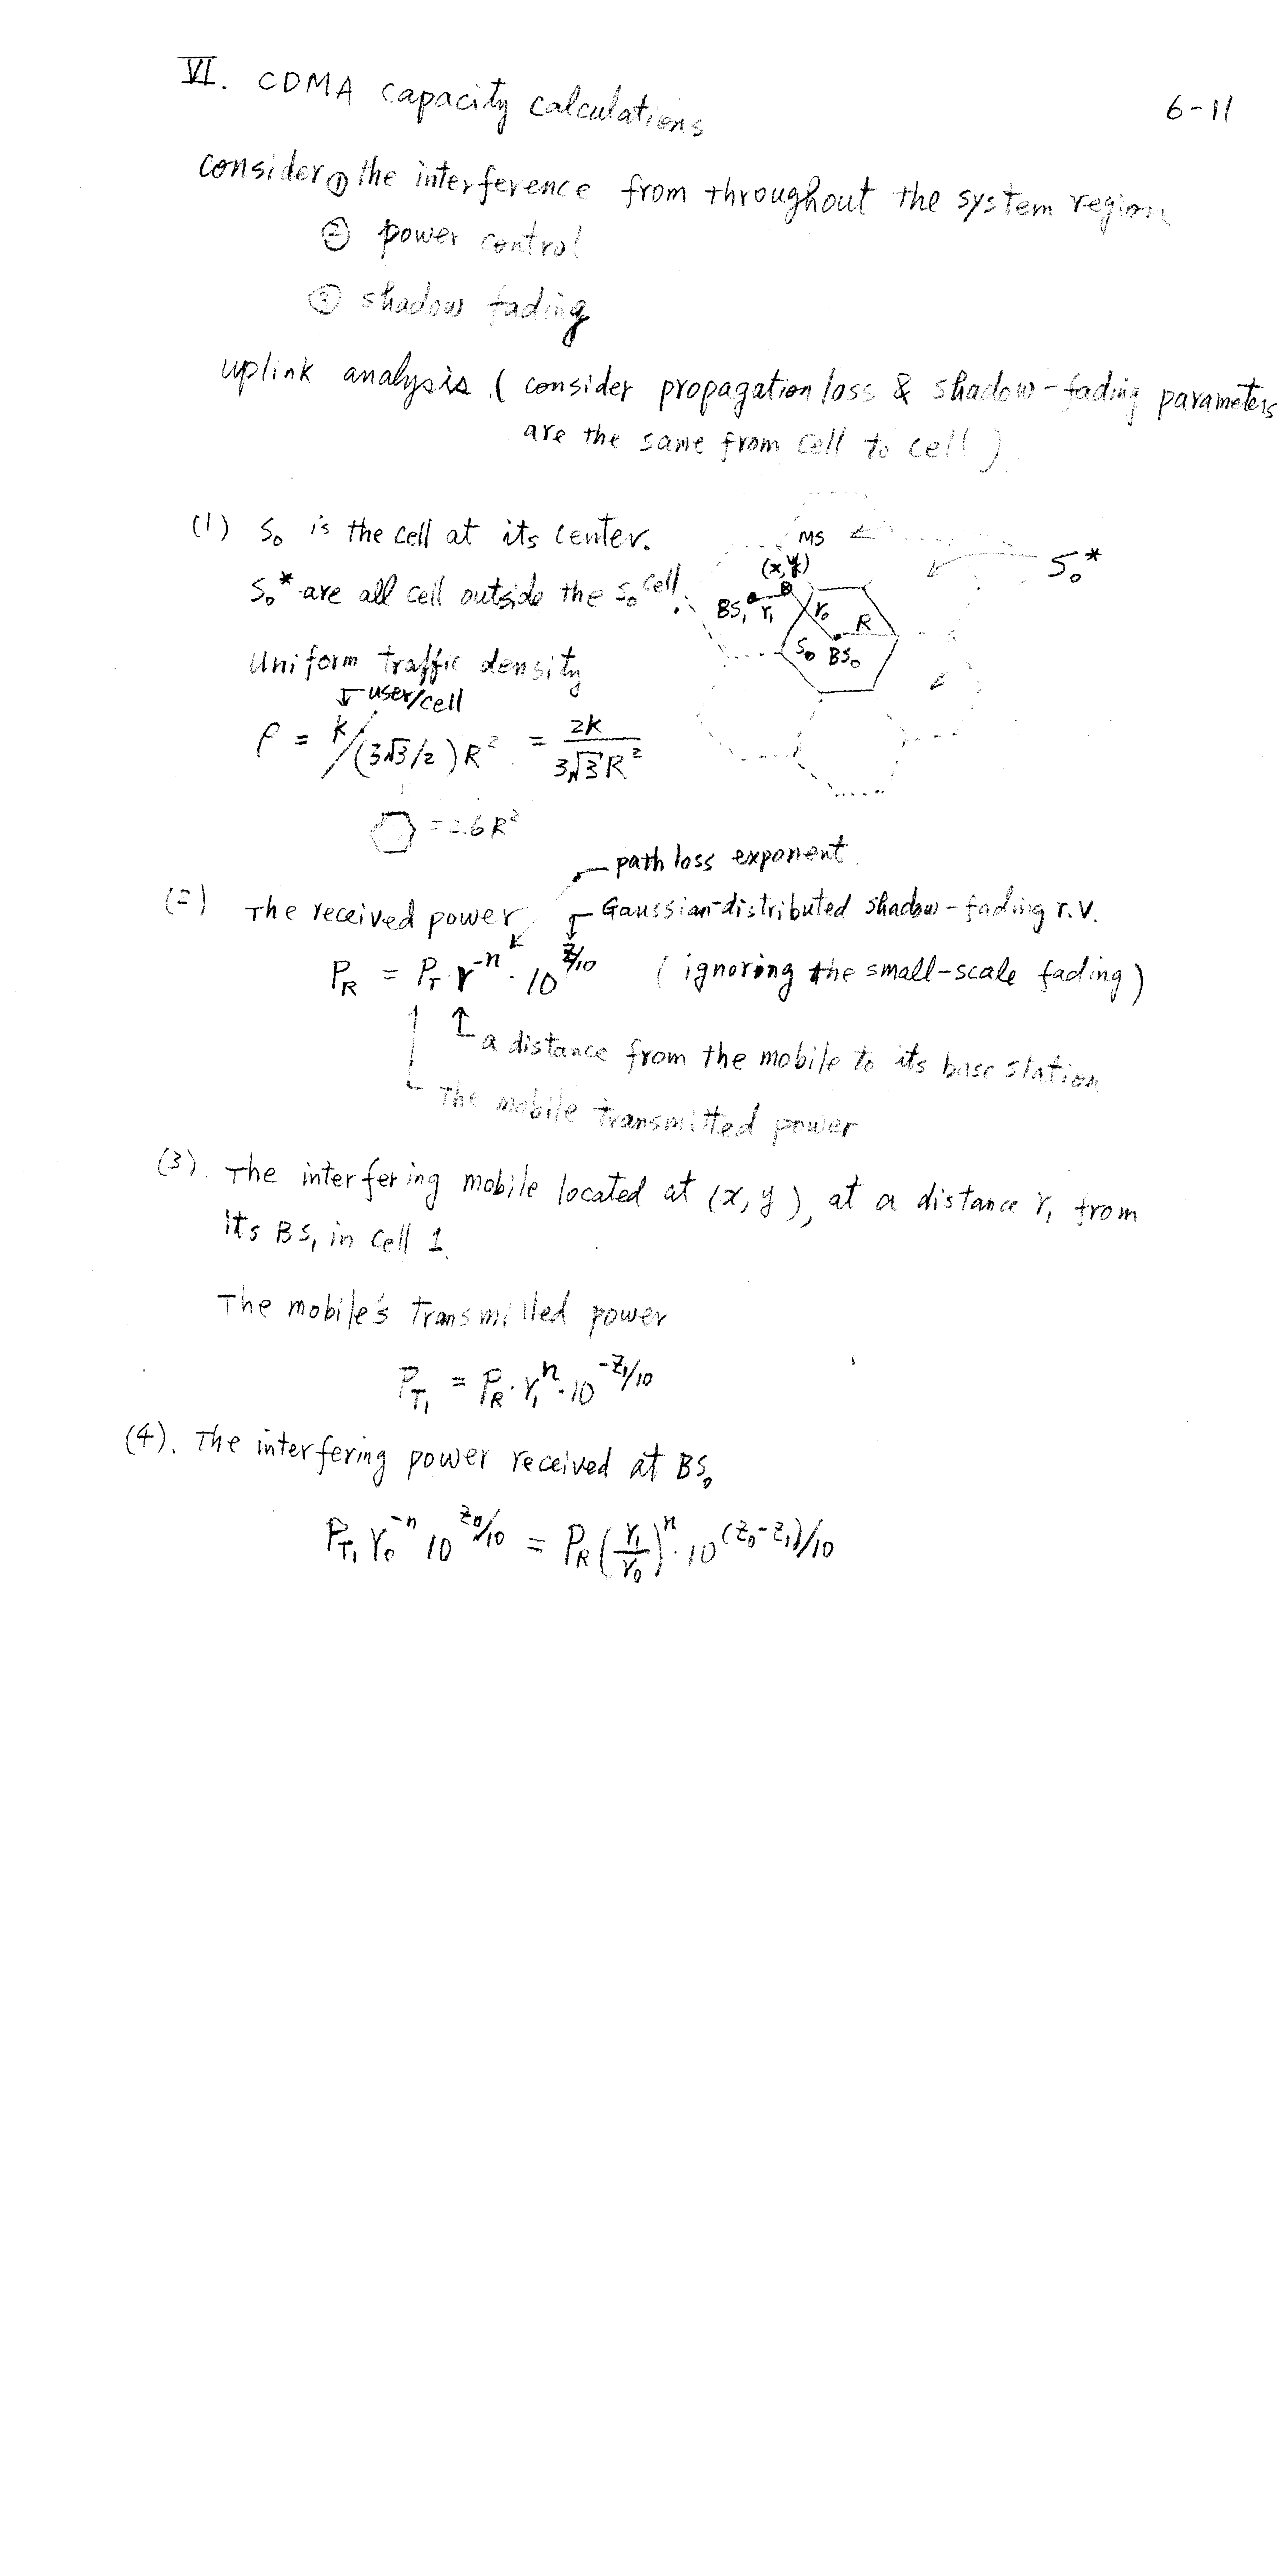 VI. CDMA capacity calculations
6-11
consider ① the interference from throughout the system region
② power control
③ shadow fading
uplink analysis ( consider propagation loss & shadow-fading parameters
are the same from cell to cell )
(1) S₀ is the cell at its center.
S₀* are all cell outside the S₀ cell.
MS
(x,y)
S₀*
BS₁ r₁
r₀
R
S₀ BS₀
Uniform traffic density
user/cell
ρ = K/(3√3/2)R² = 2K/3√3R²
= 2.6R²
path loss exponent.
(2) The received power
Gaussian-distributed shadow-fading r.v.
P_R = P_T·r⁻ⁿ·10^(z/10) ( ignoring the small-scale fading )
a distance from the mobile to its base station
The mobile transmitted power
(3). The interfering mobile located at (x,y), at a distance r₁ from
its BS₁ in cell 1.
The mobile's transmitted power
P_T₁ = P_R·r₁ⁿ·10^(-z₁/10)
(4). The interfering power received at BS₀
P_T₁ r₀⁻ⁿ 10^(z₀/10) = P_R (r₁/r₀)ⁿ·10^((z₀-z₁)/10)